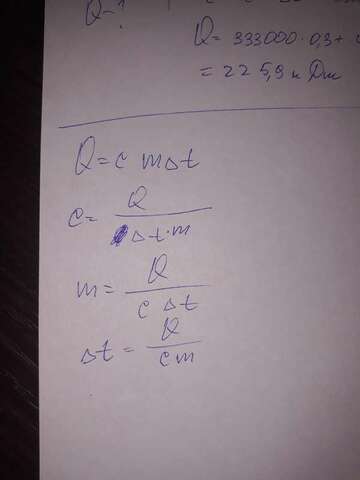 Q-?
Q= 333000·0,3+
= 225,9 кДж
Q=c mΔt
c= Q / Δt·m
m= Q / c Δt
Δt= Q / cm